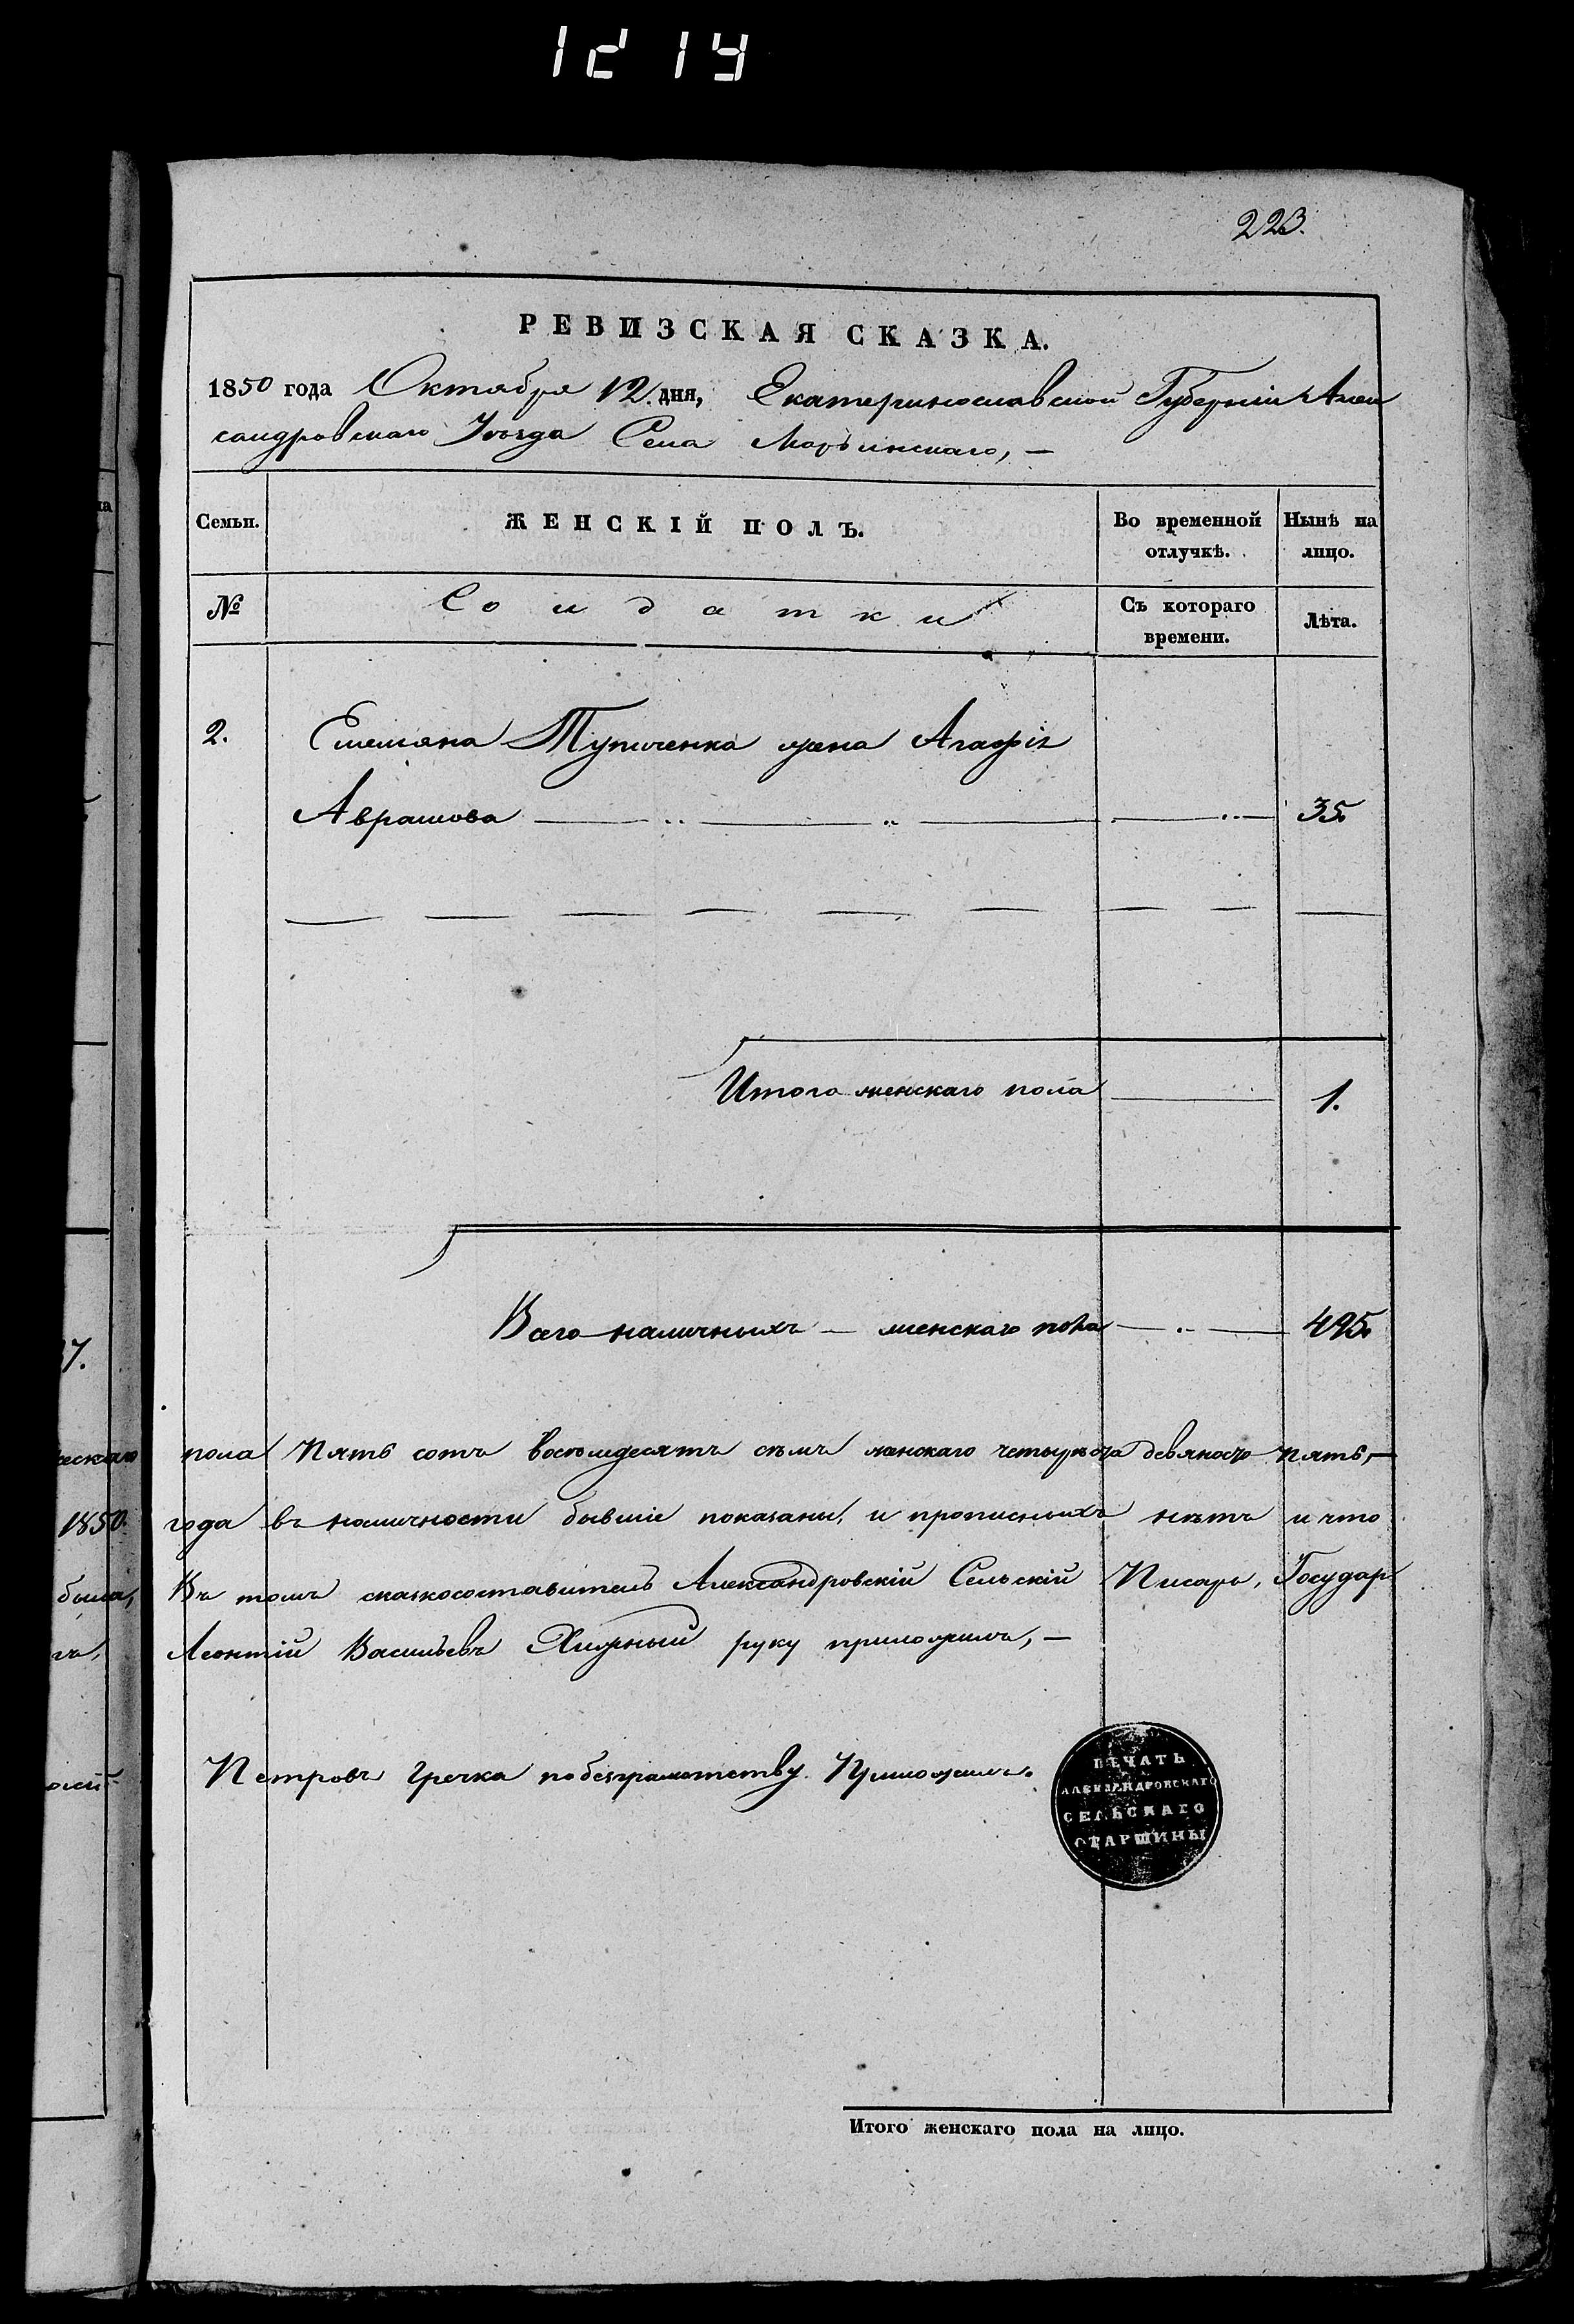 1214
223.
РЕВИЗСКАЯ СКАЗКА.
1850 года Октября 12 дня, Екатеринославской Губерніи Алек
сандровскаго Уѣзда Села Марьинскаго, —
Семьи.
ЖЕНСКІЙ ПОЛЪ.
Во временной отлучкѣ.
Нынѣ на лицо.
№
Солдатки
Съ котораго времени.
Лѣта.
2. Емельяна жена Агафія
Аврамова 35.
Итого женскаго пола 1.
Всего наличныхъ — женскаго пола 495.
7.
пола Пять сотъ восемьдесятъ семь женскаго четыреста девяносто пять, —
1850. года въ наличности бывшіе показаны, и прописныхъ нѣтъ и что
Въ томъ сказкосоставитель Александровскій Сельскій Писарь, Государ
Леонтій Васильевъ руку приложилъ, —
Петровъ Гречка по безграмотству Приложилъ.
ПЕЧАТЬ
АЛЕКСАНДРОВСКАГО
СЕЛЬСКАГО
СТАРШИНЫ
Итого женскаго пола на лицо.